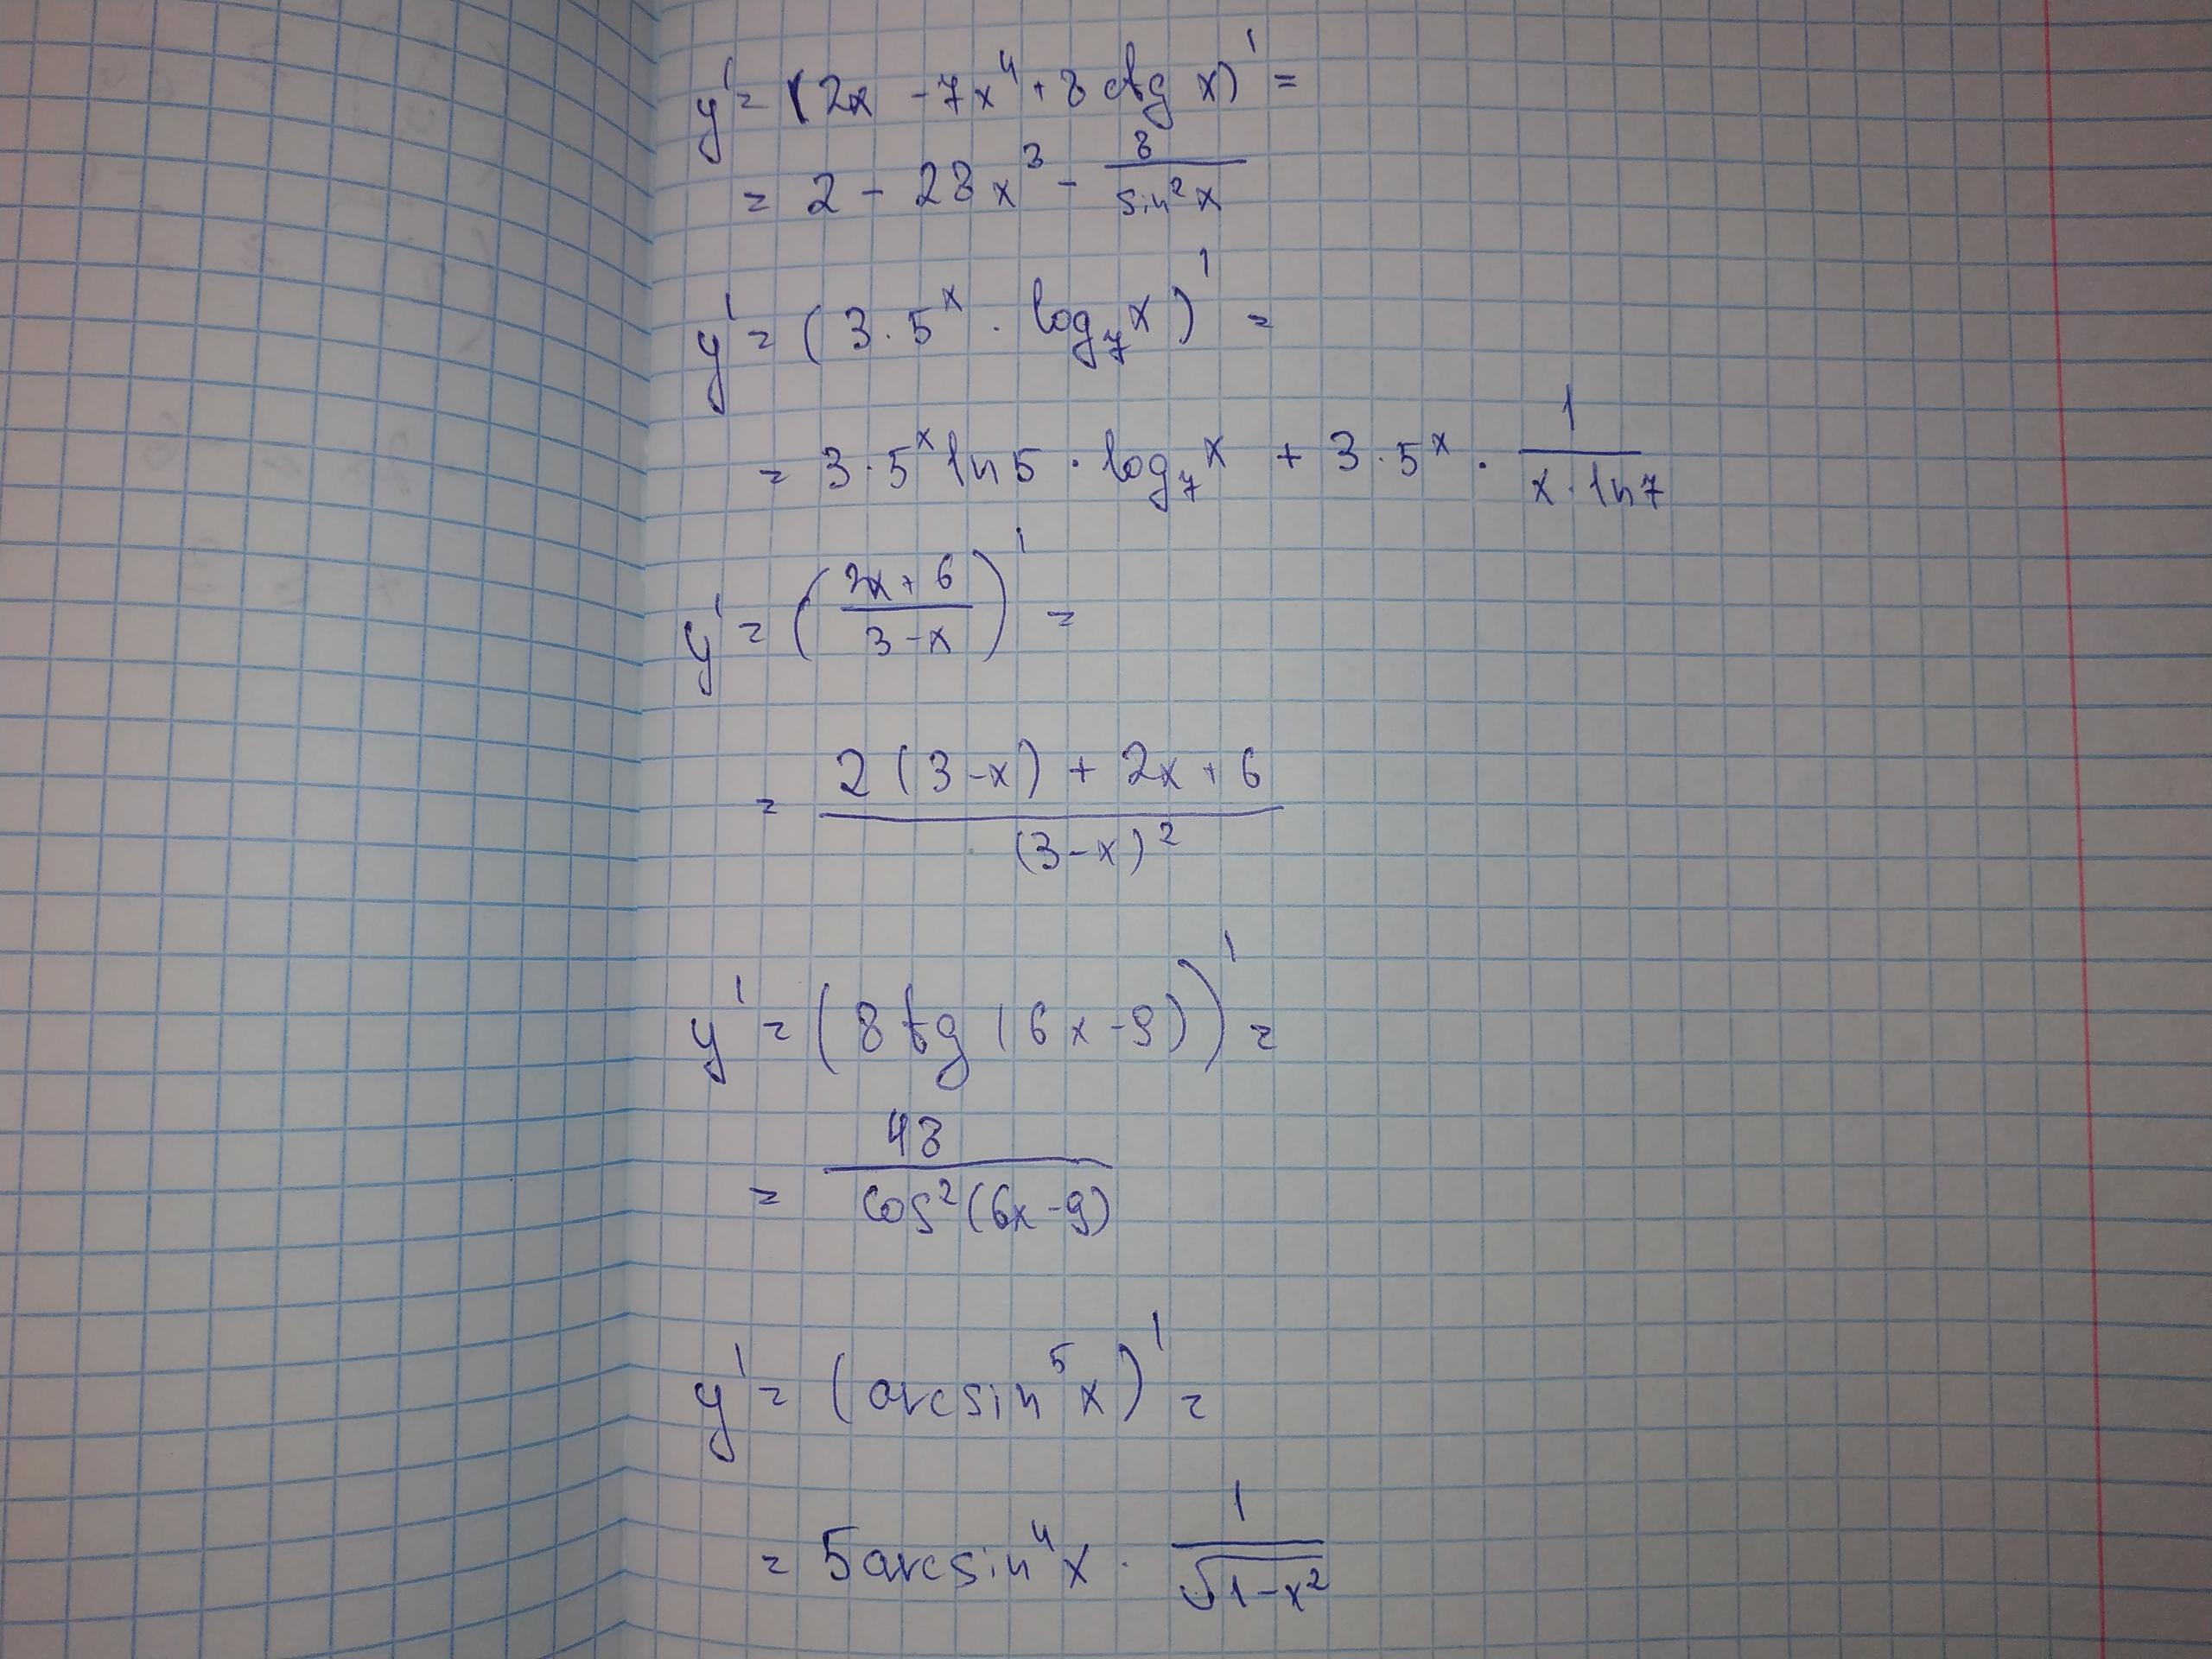 y' = (2x - 7x⁴ + 8 ctg x)' =
= 2 - 28x³ - 8/sin²x
y' = (3·5ˣ · log₇x)' =
= 3·5ˣ ln5 · log₇x + 3·5ˣ · 1/(x·ln7)
y' = ((2x+6)/(3-x))' =
= (2(3-x) + 2x + 6)/(3-x)²
y' = (8tg(6x-9))' =
= 48/cos²(6x-9)
y' = (arcsin⁵x)' =
= 5arcsin⁴x · 1/√(1-x²)